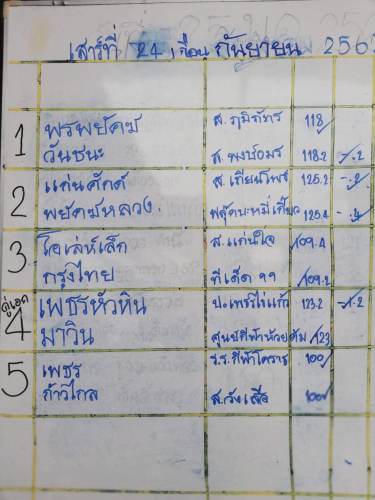 เสาร์ที่ 24 เดือน กันยายน 256
1 พรพยัคฆ์ ส.ภูมิภัทร 118
วันชนะ ส.พงษ์อมร 118.2 -.2
2 แก่นศักดิ์ ส.เทียนโพธิ์ 125.2 -.2
พยัคฆ์หลวง 125.4
3 โอเล่ห์เล็ก ส.แก่นใจ 109.4
กรุงไทย ทีเด็ด 99 109.2
คู่เอก
4 เพชรหัวหิน ป.เพชรไข่แก้ว 123.2 -.2
มาวิน ศูนย์กีฬาห้วยคัม 123
5 เพชร ร.ร.กีฬาโคราช 100
ก้าวไกล 100